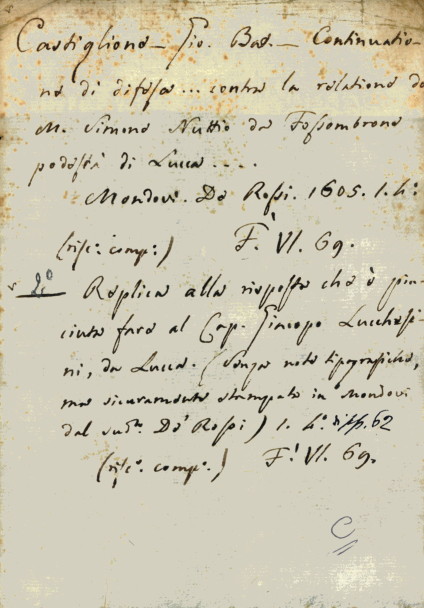 Castiglione - Gio. Bat. - Continuatio-
ne di difesa... contra la relatione de
M. Simone Nuttio da Fossombrone
podestà di Lucca ....
Mondovì. De Rossi. 1605. 1. 4º
(risc: comp:) F. VI. 69.
2º Replica alla risposta che è pia-
ciuta fare al Cap. Giacopo Lucchesi-
ni, da Lucca. (Senza note tipografiche,
ma sicuramente stampate in Mondovi
dal sudº De' Rossi) 1. 4º 62
(risc: comp:) F. VI. 69.
C